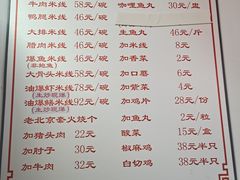 牛肉米线 58元/碗
鸭腿米线 46元/碗
大排米线 46元/碗
腊肉米线 46元/碗
爆鱼米线 46元/碗
大骨头米线 58元/碗
油爆虾米线 58元/碗
油爆鳝米线 92元/碗
老北京套火烧个
加猪头肉 22元
加肘子 30元
加牛肉 32元
咖喱鱼丸 30元/盅
生鱼丸 46元/斤
加米线 8元
加香菜 2元
加口蘑 6元
加紫菜 4元
加鸡片 28元/份
加鱼丸 2元/
酸菜 15元/盒
椒麻鸡 38元半只
白切鸡 38元半只